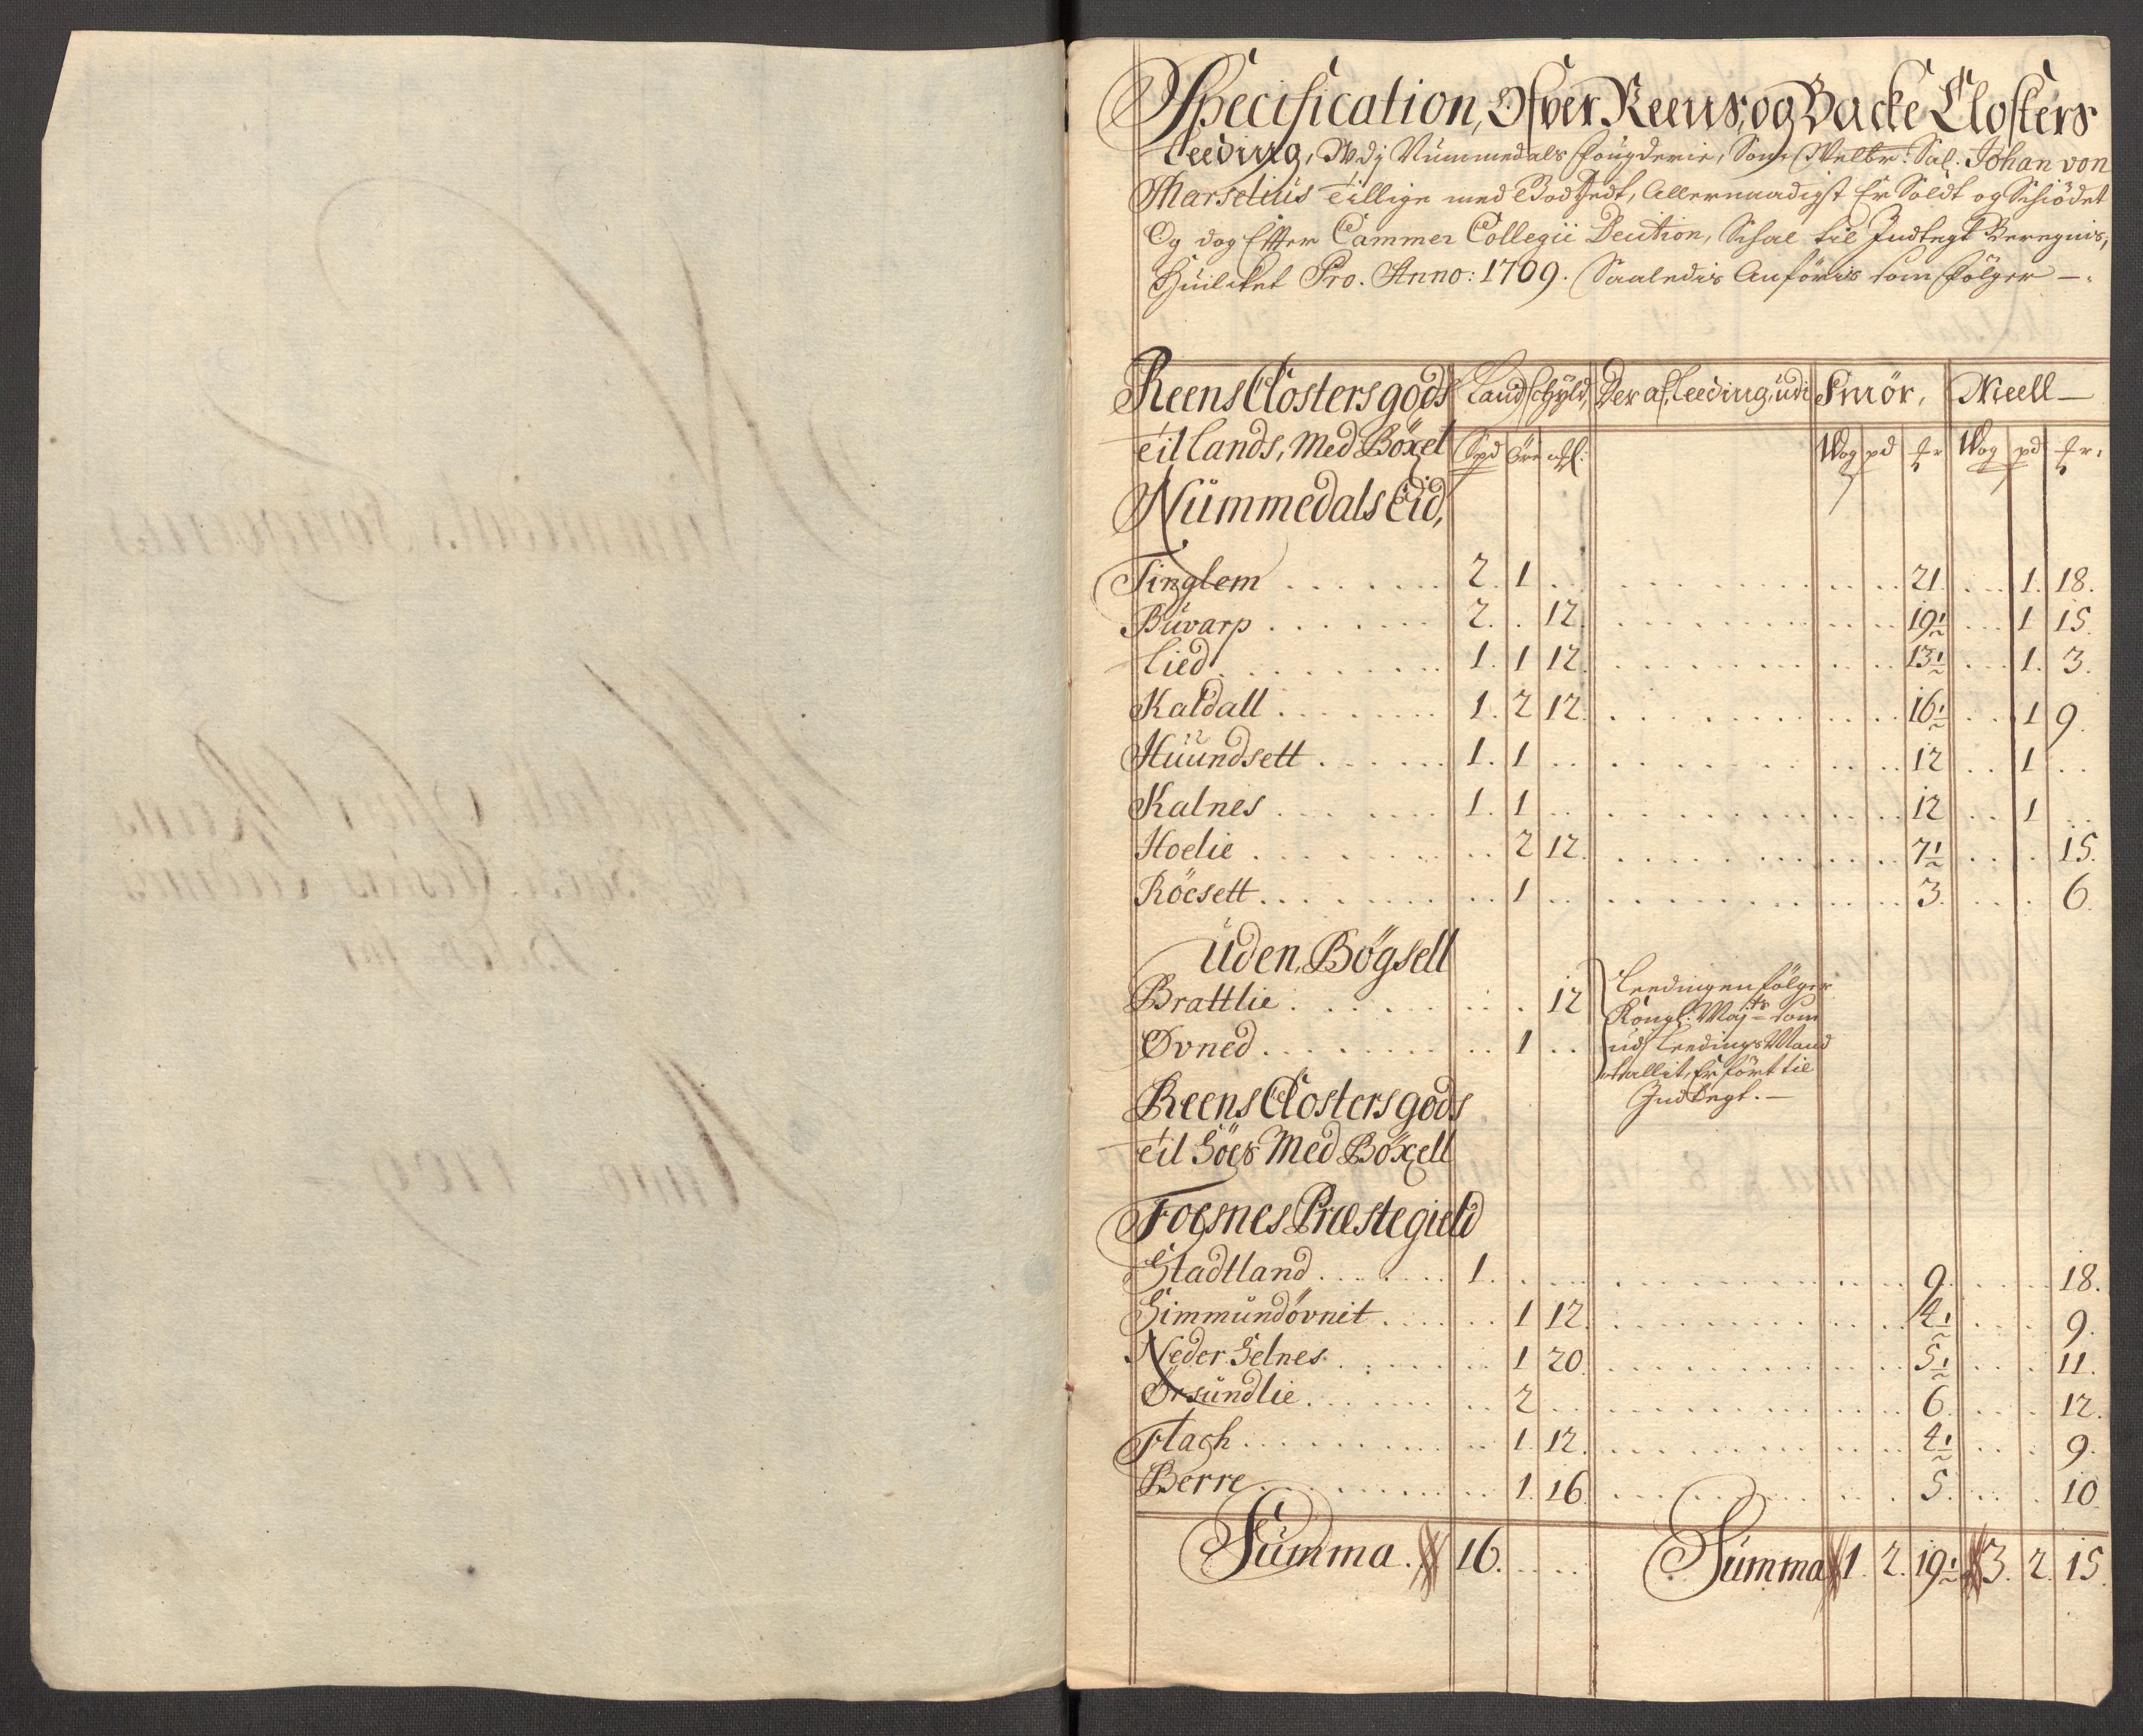 Specification, Ofver Reens, og Backe Closters
Leeding, Udj Nummedals fougderie, Som Velbr: Sal. Johan von
Marselius Tillige med Godtzedt, Allernaadigst Er Soldt og Schiødet
Og dog Efter Cammer Collegii Decition, Schal til Indtegt Beregnis,
Huilcket Pro. Anno: 1709. Saaledis Anføris som følger —
Reens Closters gods Land schyld, Der af, Leeding, udi Smør, Meell —
til lands, Med Böxel Spd Øre Wog pd Wog pd
Nummedals Eid,
Tinglem . . . 2. 1 . . 21. . . 1. 18.
Buvarp . . . 2. . 12. . . 19½ . . 1 15.
Lied . . . 1. 1 12. . . 13½ . . 1. 3.
Kaldall . . . 1. 2 12. . . 16½ . . 1 9.
Huundsett . . . 1. 1 . . 12 . . 1 . .
Kalnes . . . 1. 1 . . 12 . . 1 . .
Hoelie . . . 2 12. . . 7½ . . . 15.
Röcsett . . . 1 . . 3. . . . 6.
Uden, Bögsell
Brattlie . . . 12
Øvned . . . 1 . .
Leedingen følger
Kongl: Maj:ts som
udj Leedings Mand
tallit, Er ført til
Indtegt. —
Reens Closters gods
til Söes Med Böxell
Foesnes Præstegield
Stadtland . . . 1. . . 9. . . . 18.
Simmundövnit . . . 1 12. . . 4½ . . . 9.
Neder Selnes . . . 1 20. . . 5½ . . . 11.
Örsundlie . . . 2 . . 6. . . . 12.
Flach . . . 1. 12. . . 4½ . . . 9.
Berre . . . 1. 16. . . 5. . . . 10.
Summa. 16. . . Summa 1. 2. 19½ 3. 2. 15.